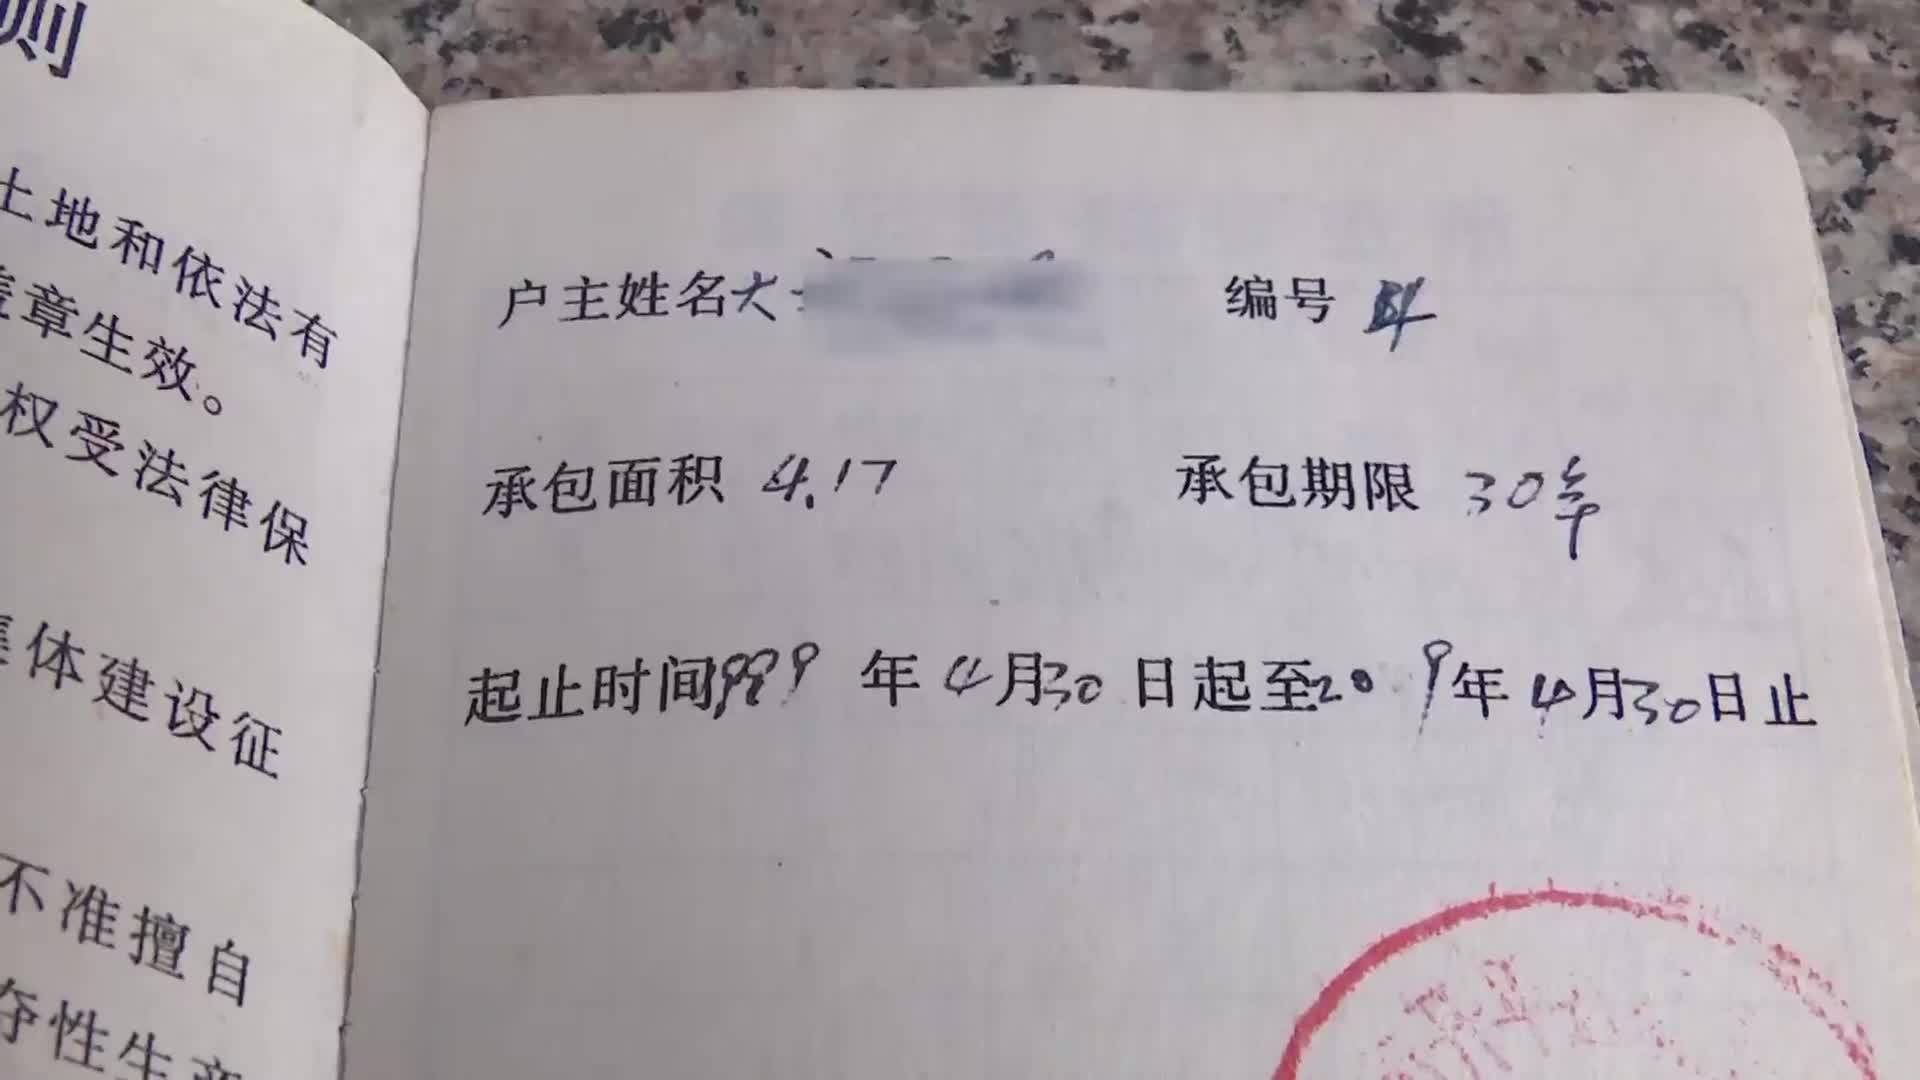 则
土地和依法有
盖章生效。
权受法律保
集体建设征
不准擅自
夺性生产
户主姓名大 编号
承包面积 4.17 承包期限 30年
起止时间999 年 4月30 日起至20 9年 4月30日止